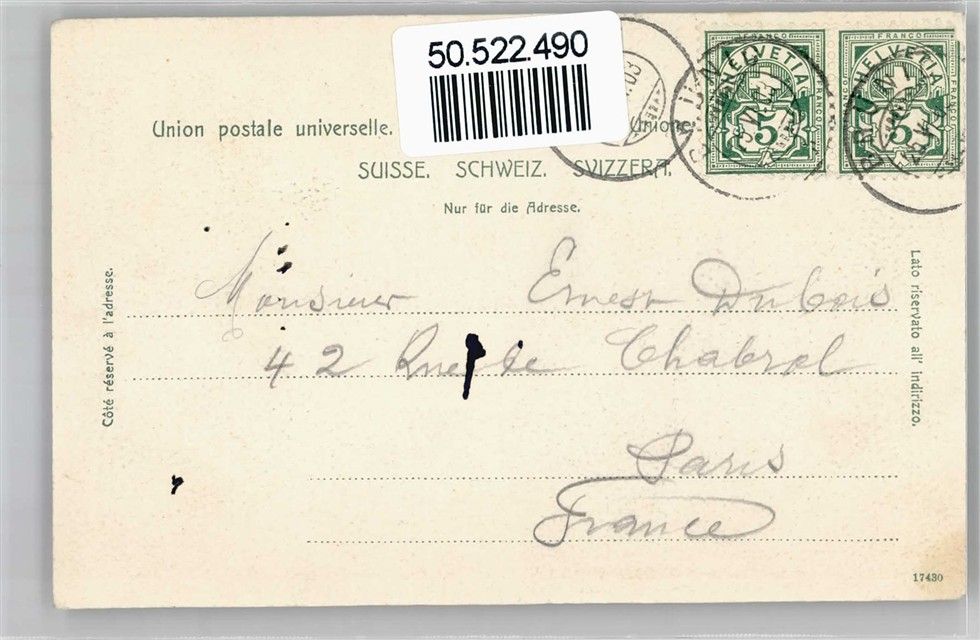 50.522.490
Union postale universelle. Unione
SUISSE. SCHWEIZ. SVIZZERA.
Nur für die Adresse.
FRANCO FRANCO
HELVETIA HELVETIA
5 5
FRANCO FRANCO
Côté réservé à l'adresse.
Lato riservato all' indirizzo.
Monsieur Ernest Dubois
42 Rue de Chabrol
Paris
France
17430